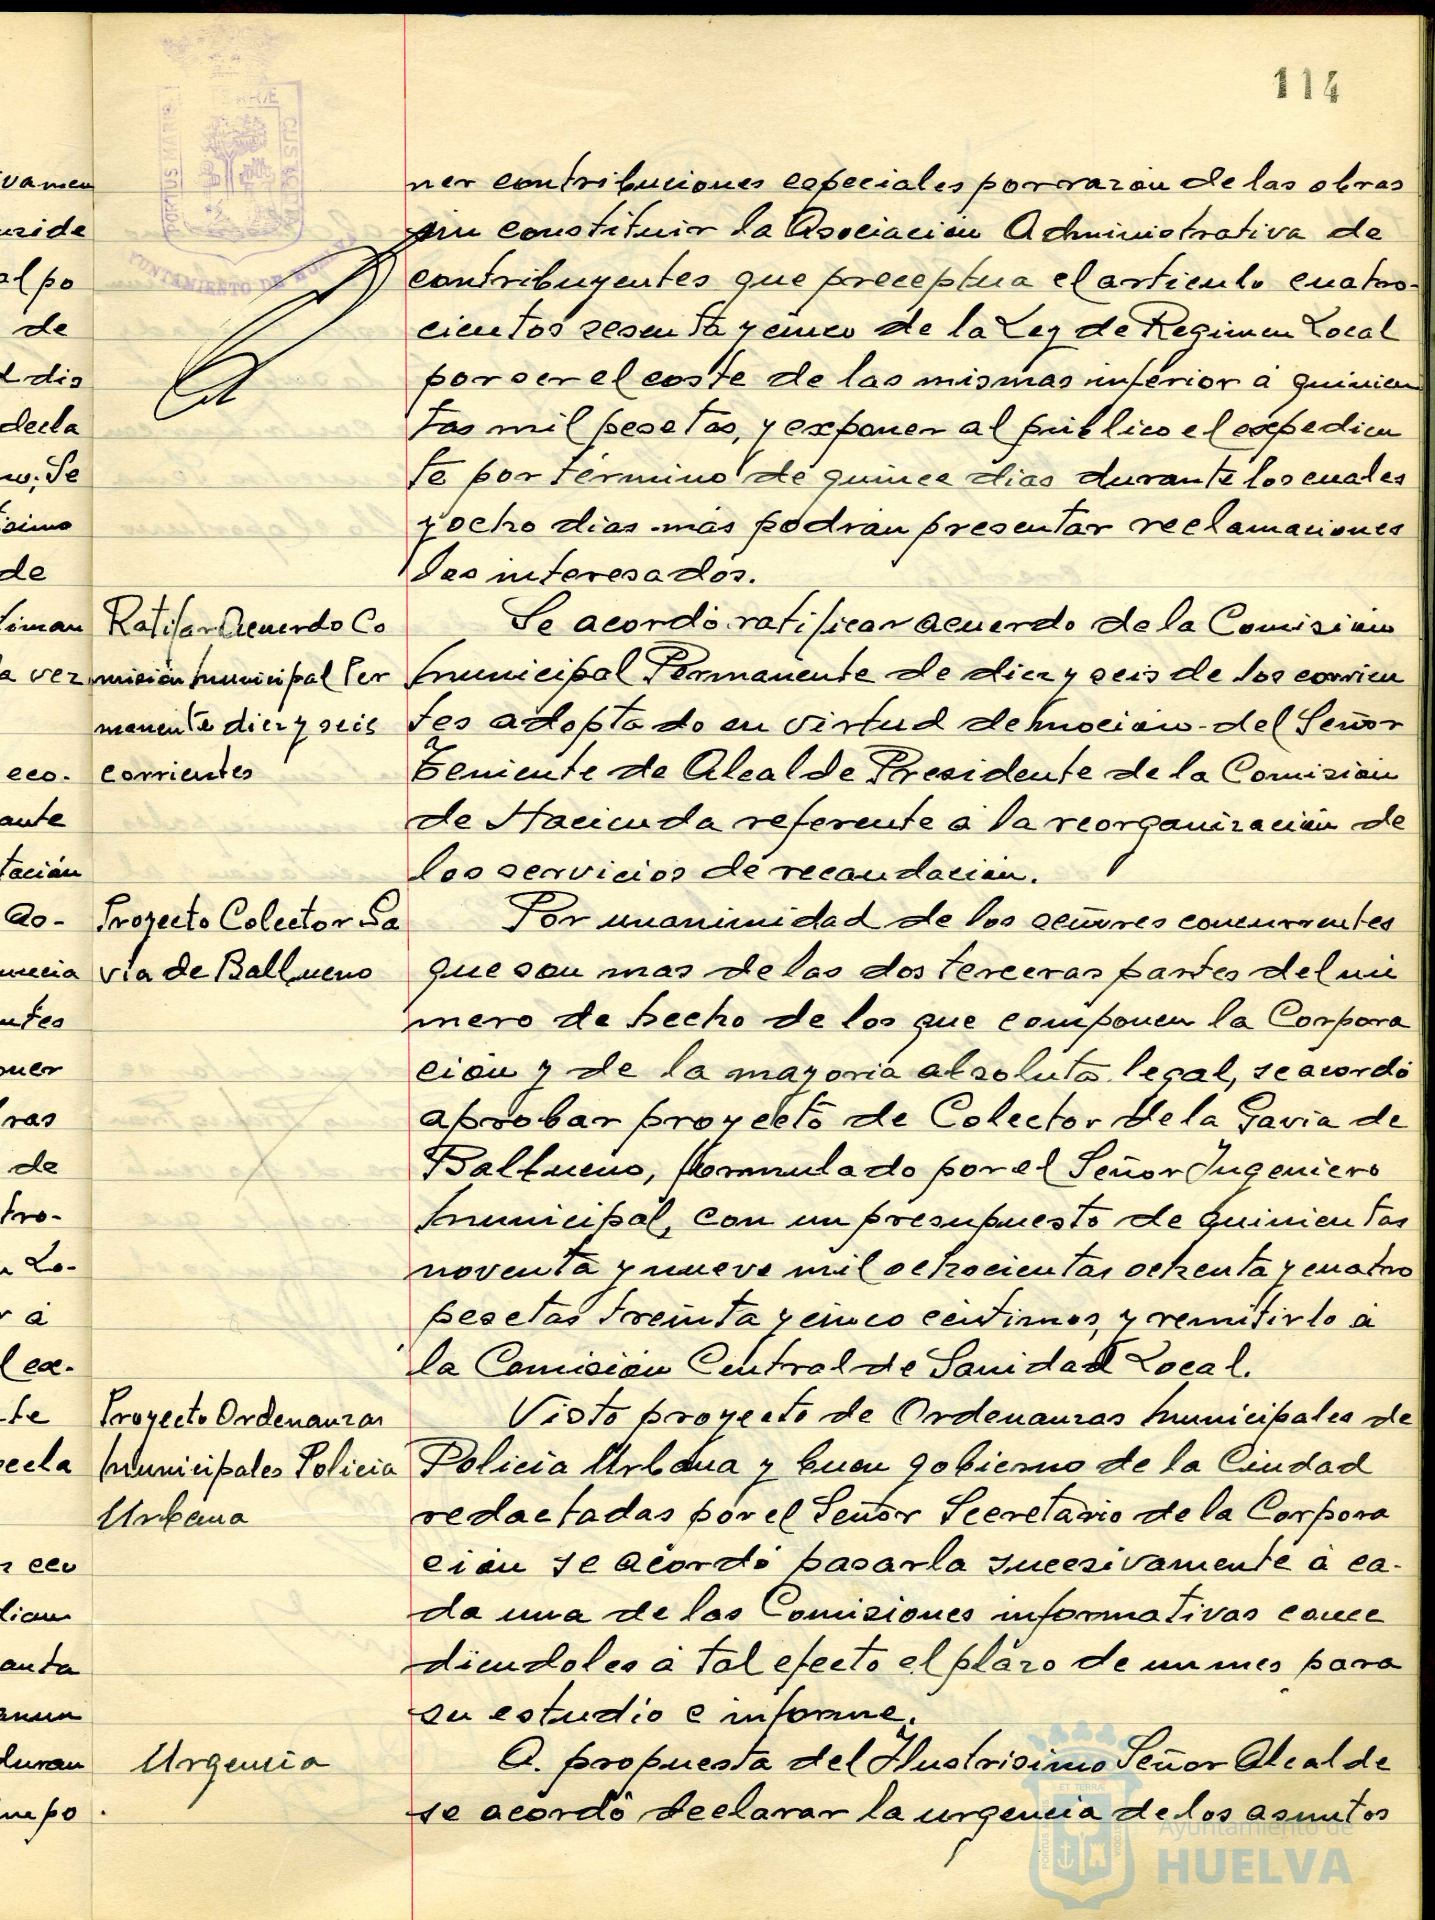 114
ner contribuciones especiales por razón de las obras
sin constituir la Asociación Administrativa de
contribuyentes que preceptua el articulo cuatro-
cientos sesenta y cinco de la Ley de Regimen Local
por ser el coste de las mismas inferior á quinien
tas mil pesetas, y exponer al público el expedien
te por término de quince dias durante los cuales
y ocho dias más podrán presentar reclamaciones
los interesados.
Ratifar Acuerdo Co
misión Municipal Per
manente diez y seis
corrientes
Se acordó ratificar acuerdo de la Comisión
Municipal Permanente de diez y seis de los corrien
tes adoptado en virtud de moción del Señor
Teniente de Alcalde Presidente de la Comisión
de Hacienda referente á la reorganización de
los servicios de recaudación.
Proyecto Colector Ga
via de Balbueno
Por unanimidad de los señores concurrentes
que son mas de las dos terceras partes del nú
mero de hecho de los que componen la Corpora
ción y de la mayoria absoluta legal, se acordó
aprobar proyecto de Colector de la Gavia de
Balbueno, formulado por el Señor Ingeniero
Municipal, con un presupuesto de quinientas
noventa y nueve mil ochocientas ochenta y cuatro
pesetas treinta y cinco céntimos, y remitirlo á
la Comisión Central de Sanidad Local.
Proyecto Ordenanzas
Municipales Policia
Urbana
Visto proyecto de Ordenanzas Municipales de
Policia Urbana y buen gobierno de la Ciudad
redactadas por el Señor Secretario de la Corpora
ción se acordó pasarla sucesivamente á ca-
da una de las Comisiones informativas conce
diendoles á tal efecto el plazo de un mes para
su estudio e informe.
Urgencia
A propuesta del Ilustrisimo Señor Alcalde
se acordó declarar la urgencia de los asuntos
Ayuntamiento de
HUELVA